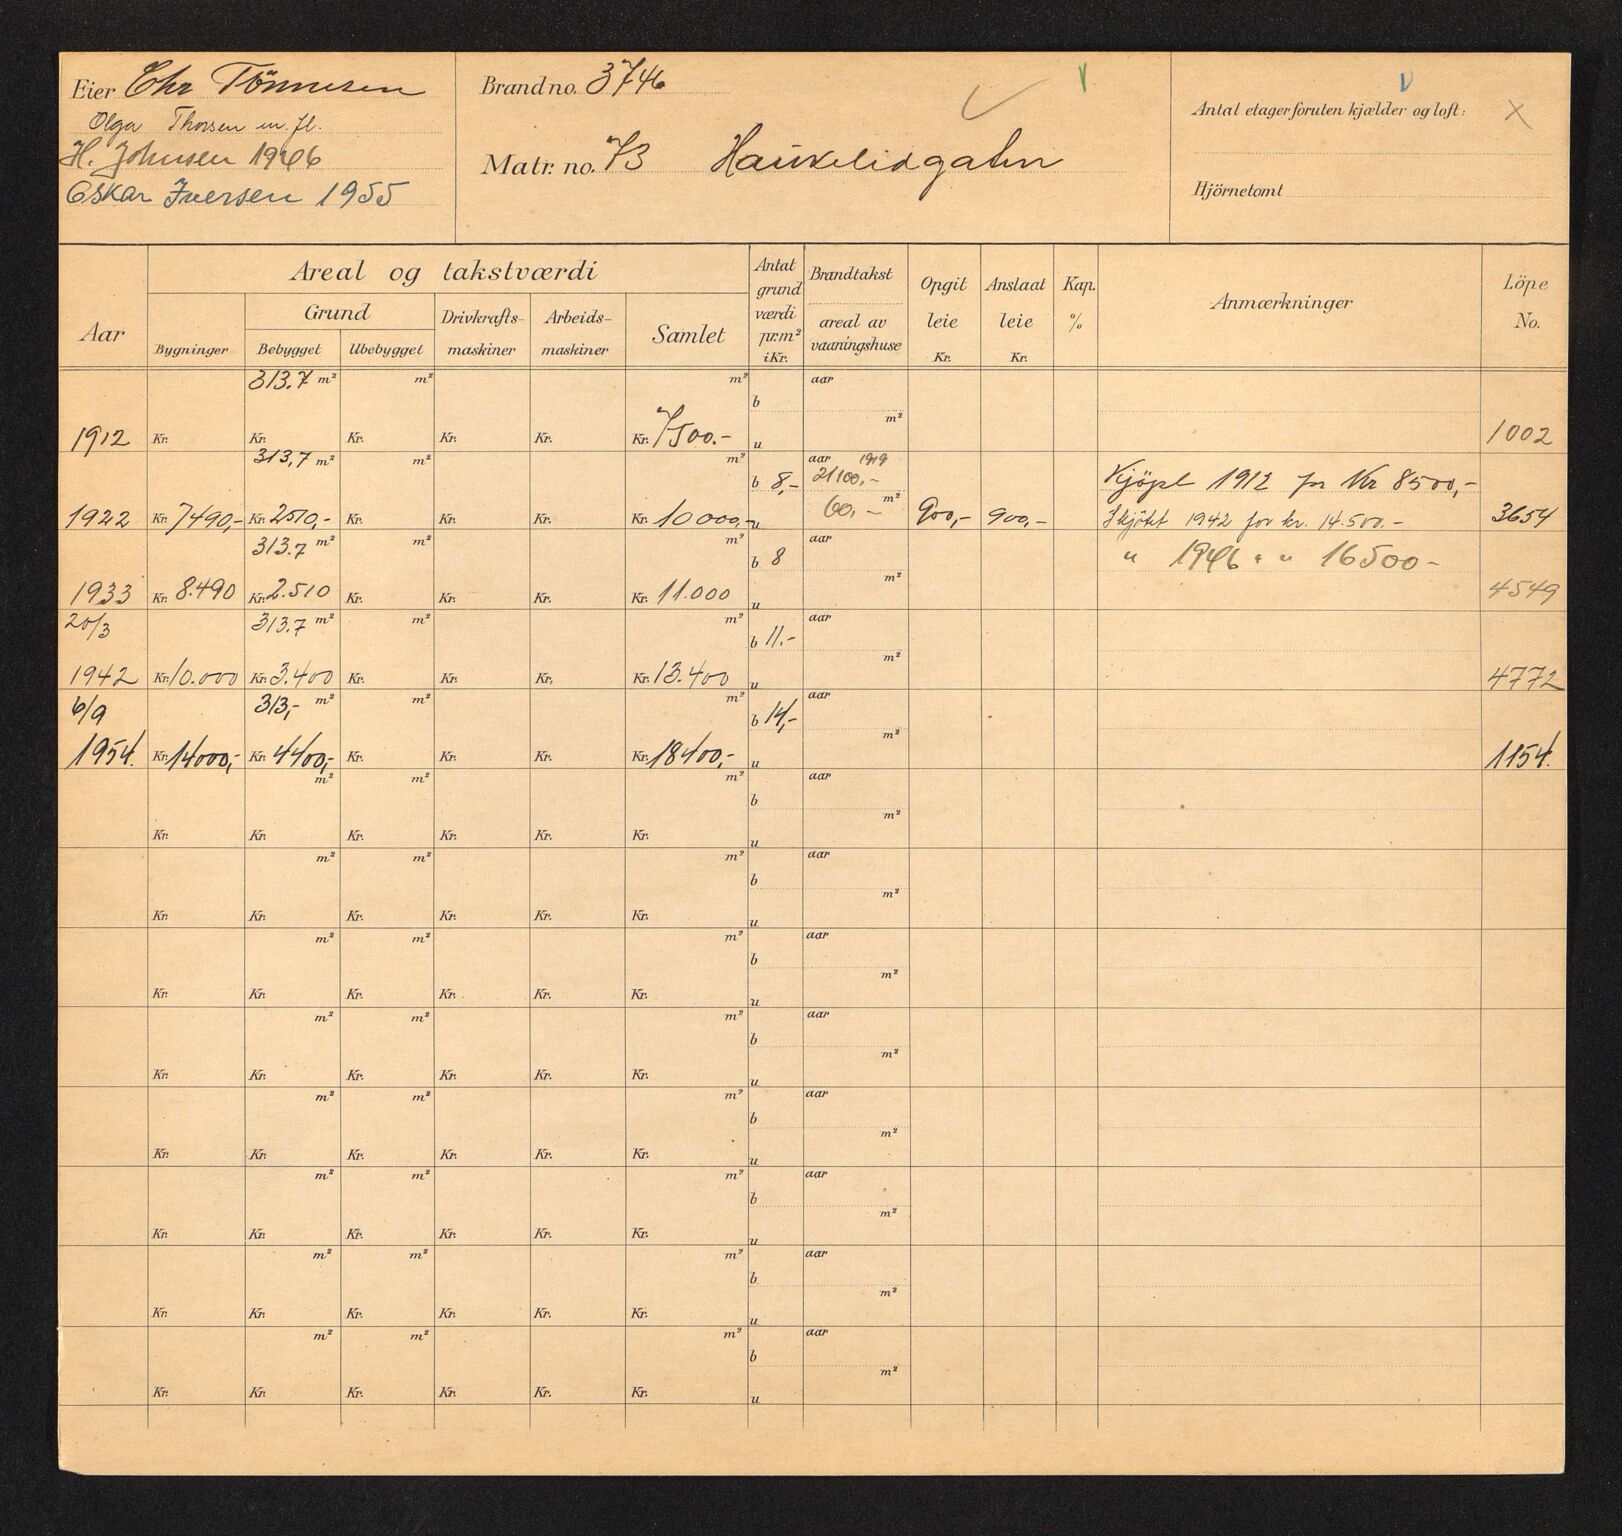 Eier Chr Tönnesen
Olga Thorsen m. fl.
H. Johnsen 1946
Oskar Iversen 1955
Brand no. 3746
Matr. no. 73 Haukelidgaten
Antal etager foruten kjælder og loft: X
Hjörnetomt
Aar
Areal og takstværdi
Bygninger
Grund
Bebygget Ubebygget
Drivkrafts-
maskiner
Arbeids-
maskiner
Samlet
Antat
grund
værdi
pr. m²
i Kr.
Brandtakst
areal av
vaaningshuse
Opgit
leie
Kr.
Anslaat
leie
Kr.
Kap.
%
Anmærkninger
Löpe
No.
313.7 m² m² m² aar
b
m²
1912 Kr. Kr. Kr. Kr. Kr. Kr. 7500.- u 1002
313,7 m² m² m² aar 1919
b 8,- 21100,- Kjöpt 1912 for Kr 8500,-
m²
1922 Kr. 7490,- Kr. 2510,- Kr. Kr. Kr. Kr. 10000,- u 60,- 900,- 900,- Skjöte 1942 for kr. 14.500.- 3654
313.7 m² m² m² aar
b 8 " 1946 " " 16500-
m²
1933 Kr. 8.490 Kr. 2.510 Kr. Kr. Kr. Kr. 11.000 u 4549
20/3 313.7 m² m² m² aar
b 11.-
m²
1942 Kr. 10.000 Kr. 3.400 Kr. Kr. Kr. Kr. 13.400 u 4772
6/9 313,- m² m² m² aar
b 14,-
m²
1954. Kr. 14000,- Kr. 4400,- Kr. Kr. Kr. Kr. 18400,- u 1154.
m² m² m² aar
b
m²
Kr. Kr. Kr. Kr. Kr. Kr. u
m² m² m² aar
b
m²
Kr. Kr. Kr. Kr. Kr. Kr. u
m² m² m² aar
b
m²
Kr. Kr. Kr. Kr. Kr. Kr. u
m² m² m² aar
b
m²
Kr. Kr. Kr. Kr. Kr. Kr. u
m² m² m² aar
b
m²
Kr. Kr. Kr. Kr. Kr. Kr. u
m² m² m² aar
b
m²
Kr. Kr. Kr. Kr. Kr. Kr. u
m² m² m² aar
b
m²
Kr. Kr. Kr. Kr. Kr. Kr. u
m² m² m² aar
b
m²
Kr. Kr. Kr. Kr. Kr. Kr. u